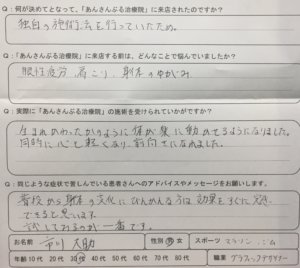 Q:何が決めてとなって、「あんさんぶる治療院」に来店されたのですか?
独自の施術法を行っていたため。
Q:「あんさんぶる治療院」に来店する前は、どんなことで悩んでいましたか?
眼性疲労 肩こり、身体のゆがみ
Q:実際に「あんさんぶる治療院」の施術を受けられていかがですか?
生まれかわったかのように体が楽に動かせるようになりました。
同時に心も軽くなり、前向きになれました。
Q:同じような症状で苦しんでいる患者さんへのアドバイスやメッセージをお願いします。
普段から身体の変化にびんかんな方は効果をすぐに
できると思います。
試してみるのが一番です。
お名前 市川 大助 性別 男 女 スポーツ マラソン ジム
年齢 10代 20代 30代 40代 50代 60代 70代 80代 職業 グラフィックデザイナー